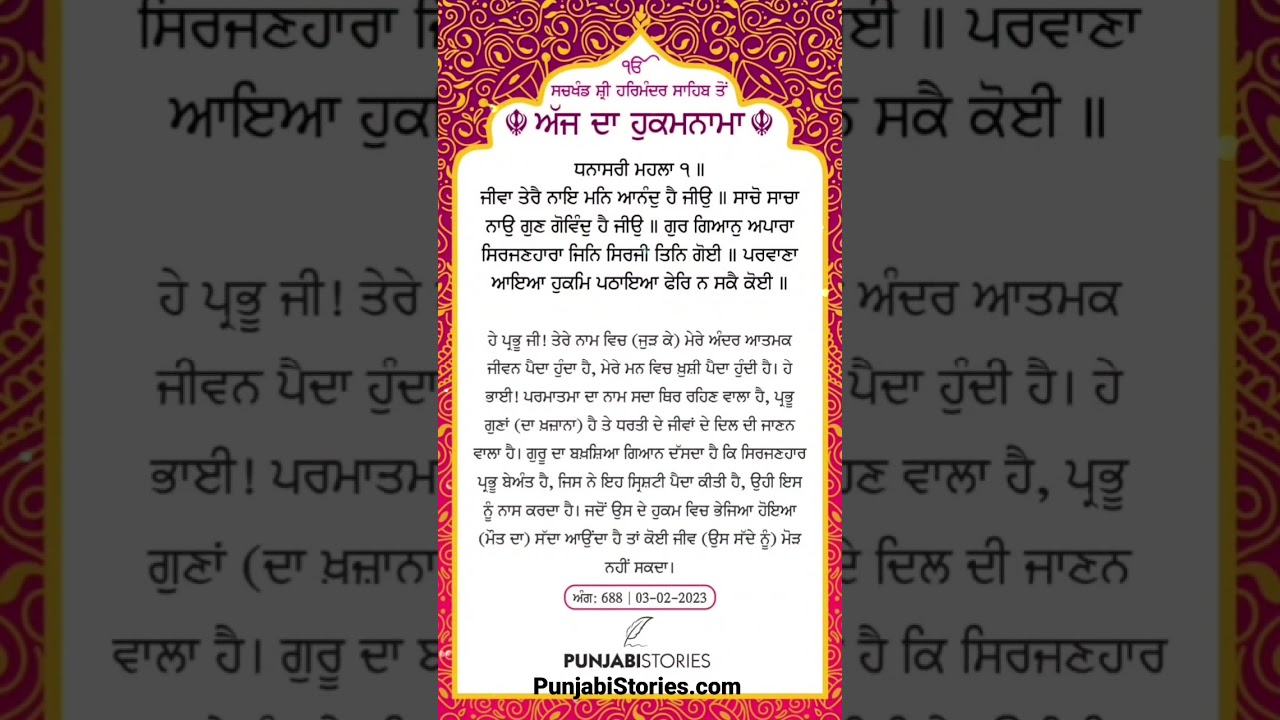 ੴ
ਸਚਖੰਡ ਸ਼੍ਰੀ ਹਰਿਮੰਦਰ ਸਾਹਿਬ ਤੋਂ
ਅੱਜ ਦਾ ਹੁਕਮਨਾਮਾ
ਧਨਾਸਰੀ ਮਹਲਾ ੧ ॥
ਜੀਵਾ ਤੇਰੈ ਨਾਇ ਮਨਿ ਆਨੰਦੁ ਹੈ ਜੀਉ ॥ ਸਾਚੋ ਸਾਚਾ
ਨਾਉ ਗੁਣ ਗੋਵਿੰਦੁ ਹੈ ਜੀਉ ॥ ਗੁਰ ਗਿਆਨੁ ਅਪਾਰਾ
ਸਿਰਜਣਹਾਰਾ ਜਿਨਿ ਸਿਰਜੀ ਤਿਨਿ ਗੋਈ ॥ ਪਰਵਾਣਾ
ਆਇਆ ਹੁਕਮਿ ਪਠਾਇਆ ਫੇਰਿ ਨ ਸਕੈ ਕੋਈ ॥
ਹੇ ਪ੍ਰਭੂ ਜੀ! ਤੇਰੇ ਨਾਮ ਵਿਚ (ਜੁੜ ਕੇ) ਮੇਰੇ ਅੰਦਰ ਆਤਮਕ
ਜੀਵਨ ਪੈਦਾ ਹੁੰਦਾ ਹੈ, ਮੇਰੇ ਮਨ ਵਿਚ ਖ਼ੁਸ਼ੀ ਪੈਦਾ ਹੁੰਦੀ ਹੈ। ਹੇ
ਭਾਈ! ਪਰਮਾਤਮਾ ਦਾ ਨਾਮ ਸਦਾ ਥਿਰ ਰਹਿਣ ਵਾਲਾ ਹੈ, ਪ੍ਰਭੂ
ਗੁਣਾਂ (ਦਾ ਖ਼ਜ਼ਾਨਾ) ਹੈ ਤੇ ਧਰਤੀ ਦੇ ਜੀਵਾਂ ਦੇ ਦਿਲ ਦੀ ਜਾਣਨ
ਵਾਲਾ ਹੈ। ਗੁਰੂ ਦਾ ਬਖ਼ਸ਼ਿਆ ਗਿਆਨ ਦੱਸਦਾ ਹੈ ਕਿ ਸਿਰਜਣਹਾਰ
ਪ੍ਰਭੂ ਬੇਅੰਤ ਹੈ, ਜਿਸ ਨੇ ਇਹ ਸ੍ਰਿਸ਼ਟੀ ਪੈਦਾ ਕੀਤੀ ਹੈ, ਉਹੀ ਇਸ
ਨੂੰ ਨਾਸ ਕਰਦਾ ਹੈ। ਜਦੋਂ ਉਸ ਦੇ ਹੁਕਮ ਵਿਚ ਭੇਜਿਆ ਹੋਇਆ
(ਮੌਤ ਦਾ) ਸੱਦਾ ਆਉਂਦਾ ਹੈ ਤਾਂ ਕੋਈ ਜੀਵ (ਉਸ ਸੱਦੇ ਨੂੰ) ਮੋੜ
ਨਹੀਂ ਸਕਦਾ।
ਅੰਗ: 688 | 03-02-2023
PUNJABISTORIES
PunjabiStories.com
ਸਿਰਜਣਹਾਰਾ
ਈ ॥ ਪਰਵਾਣਾ
ਆਇਆ ਹੁਕਮਿ
ਸਕੈ ਕੋਈ ॥
ਹੇ ਪ੍ਰਭੂ ਜੀ! ਤੇਰੇ
ਅੰਦਰ ਆਤਮਕ
ਜੀਵਨ ਪੈਦਾ ਹੁੰਦਾ
ਪੈਦਾ ਹੁੰਦੀ ਹੈ। ਹੇ
ਭਾਈ! ਪਰਮਾਤਮਾ
ਵਾਲਾ ਹੈ, ਪ੍ਰਭੂ
ਗੁਣਾਂ (ਦਾ ਖ਼ਜ਼ਾਨਾ
ਦੇ ਦਿਲ ਦੀ ਜਾਣਨ
ਵਾਲਾ ਹੈ। ਗੁਰੂ ਦਾ
ਹੈ ਕਿ ਸਿਰਜਣਹਾਰ